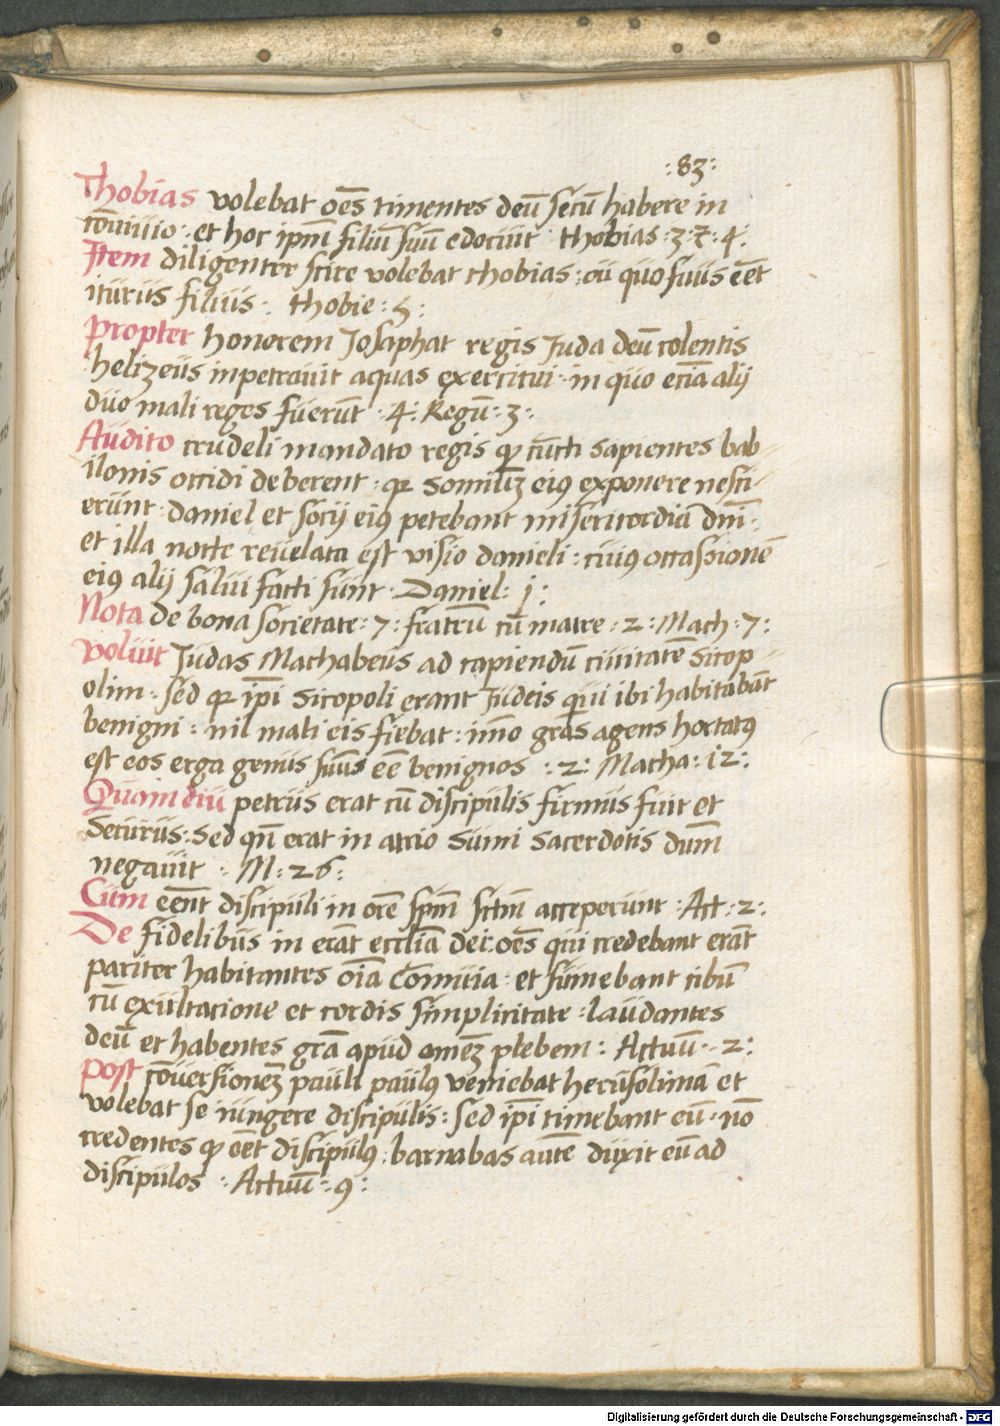 :83:
Thobias volebat oēs timentes deū secū habere in
cōuiuio : et hoc ipm̄ filiū suū edocuit · thobias : 3 : 7 : 4 :
Item diligenter scire volebat thobias : cū quo suus eēt
iturus filius : thobie : 5 :
Propter honorem Josaphat regis Juda deū colentis
helizeus inpetrauit aquas exercitui · in quo ecia alij
duo mali reges fuerūt : 4 : Regū : 3 :
Audito crudeli mandato regis qꝫ cūcti sapientes bab-
ilonis occidi deberent : qr somniūꝫ eiꝯ exponere nesci-
erunt · daniel et socij eiꝯ petebant misericordiā dnī ·
et illa nocte reuelata est visio danieli : cuiꝯ occassionē
eiꝯ alij salui facti sunt · Daniel : j :
Nota de bona societate : 7 : fratrū cū matre : 2 : Mach : 7 :
Voluit Judas Machabeus ad capiendū ciuitatē sitop-
olim : sed qr ip̄i sitopoli erant Judeis qui ibi habitabāt
benigni : nil mali eis fiebat : im̄o grās agens hortatꝯ
est eos erga genus suūs eē benignos : 2 : Macha : 12 :
Quamdiu petrus erat cū discipulis firmus fuit et
securus : sed qn̄ erat in atrio sumi sacerdotis dūm̄
negauit : M : 26 :
Cum eēnt discipuli in orē spm̄ sctm̄ acceperunt : Act : 2 :
De fidelibus in erāt eccliā dei : oēs qui credebant erāt
pariter habitantes oīa Comuia · et sumebant cibū
cū exultacione et cordis simplicitate : laudantes
deū et habentes grā apud omeꝫ plebem : Actuū : 2 :
Post cōuersioneꝫ pauli paulꝯ veniebat herusolimā et
volebat se iungere discipulis : sed ip̄i timebant eū : nō
credentes qꝫ eēt discipulꝯ : barnabas autē duxit eū ad
discipulos : Actuū : 9 :
Digitalisierung gefördert durch die Deutsche Forschungsgemeinschaft - DFG